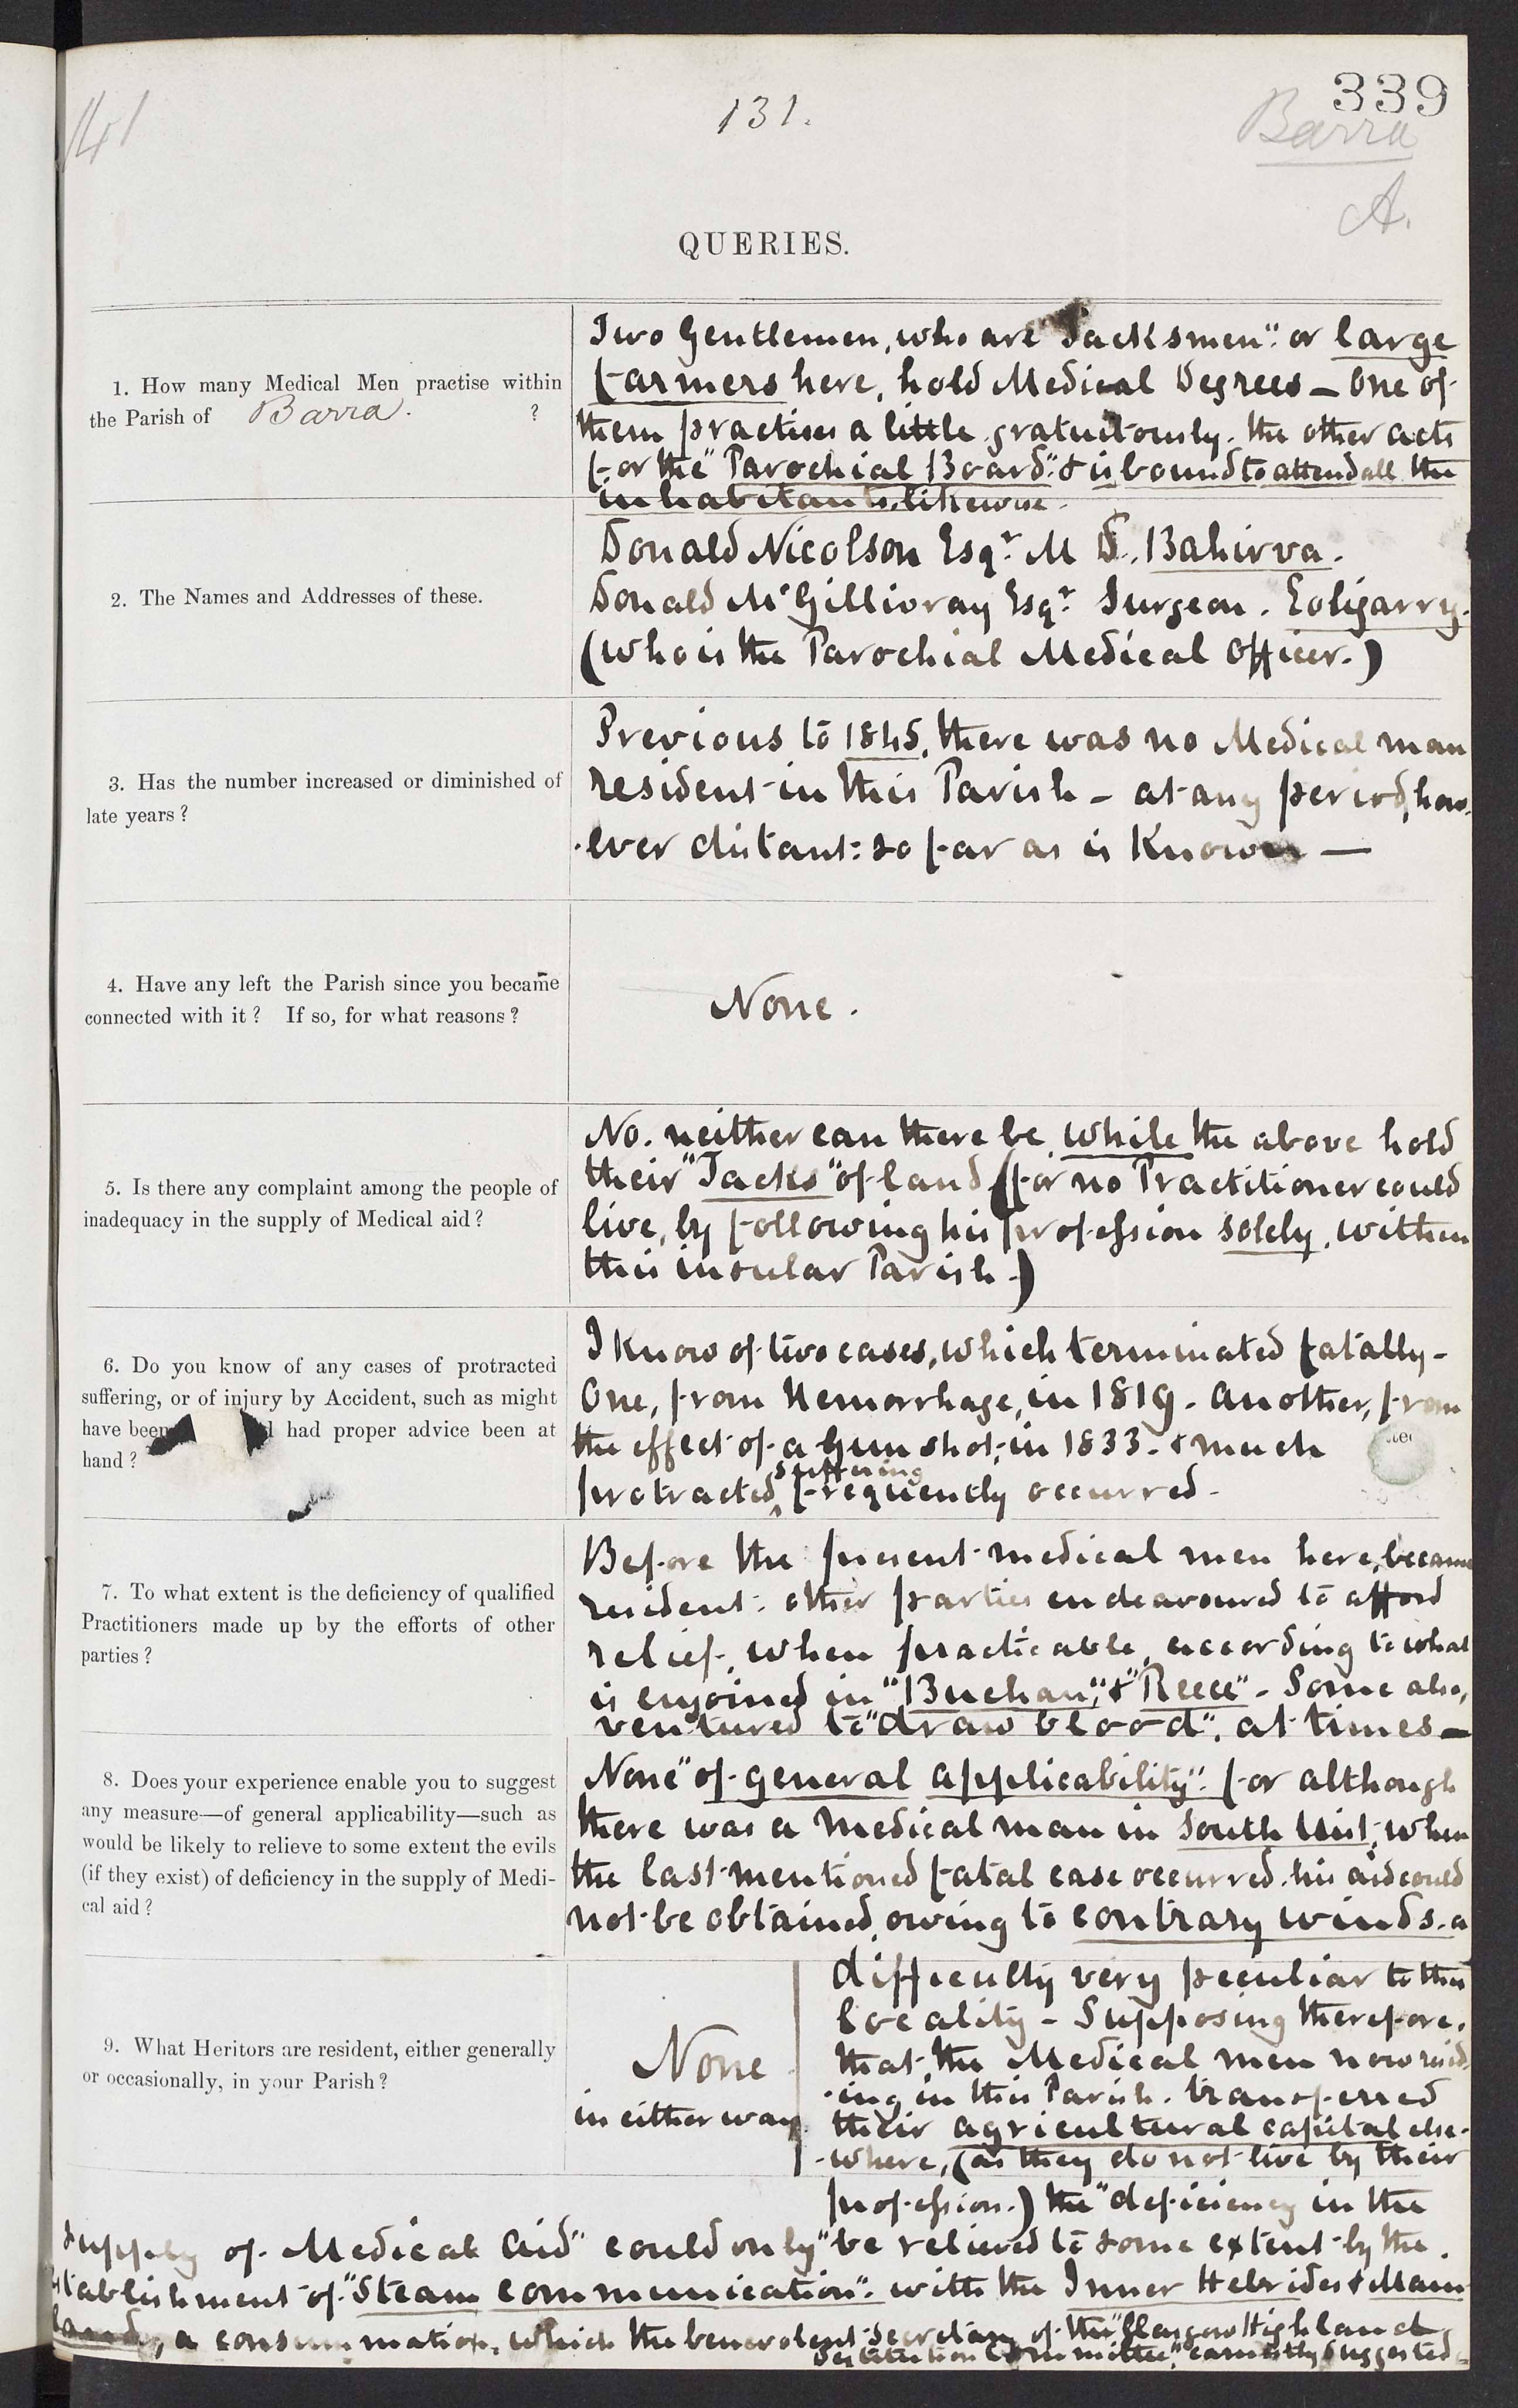 339
141
131.
Barra
A.
QUERIES.
1. How many Medical Men practise within
the Parish of Barra. ?
Two Gentlemen, who are "Tacksmen" or large
farmers here, hold Medical Degrees – One of
them practises a little gratuitously. the other acts
for the "Parochial Board" & is bound to attend all the
inhabitants, likewise.
2. The Names and Addresses of these.
Donald Nicolson Esqr. M D. Bahirva.
Donald McGillivray Esqr. Surgeon. Eoligarry.
(who is the Parochial Medical Officer.)
3. Has the number increased or diminished of
late years?
Previous to 1845, there was no Medical man
resident in this Parish – at any period, how-
-ever distant: so far as is Known —
4. Have any left the Parish since you became
connected with it? If so, for what reasons?
None.
5. Is there any complaint among the people of
inadequacy in the supply of Medical aid?
No. neither can there be while the above hold
their "Tacks" of land (for no Practitioner could
live, by following his profession solely, within
this insular Parish.)
6. Do you know of any cases of protracted
suffering, or of injury by Accident, such as might
have been had proper advice been at
hand?
I know of two cases, which terminated fatally –
One, from Hemorrhage, in 1819. another, from
the effect of a Gun shot, in 1833. & much
protracted suffering frequently occurred.
7. To what extent is the deficiency of qualified
Practitioners made up by the efforts of other
parties?
Before the present medical men here, became
resident. other parties endeavoured to afford
relief, when practicable, according to what
is enjoined in "Buchan", & "Reece" – Some also,
ventured to "draw blood", at times –
8. Does your experience enable you to suggest
any measure—of general applicability—such as
would be likely to relieve to some extent the evils
(if they exist) of deficiency in the supply of Medi-
cal aid?
None "of general applicability". for although
there was a Medical man in South Uist, when
the last mentioned fatal case occurred. his aid could
not be obtained, owing to contrary winds. a
difficulty very peculiar to this
locality – Supposing therefore,
that, the Medical men now resid-
-ing in this Parish. transferred
their agricultural capital else-
-where, (as they do not live by their
profession.) the "deficiency in the
supply of Medical Aid" could only "be relieved to some extent" by the
establishment of "Steam communication". with the Inner Hebrides & Main
land, a consummation, which the benevolent Secretary of the "Glasgow Highland
Destitution Committee," earnestly suggested.
9. What Heritors are resident, either generally
or occasionally, in your Parish?
None
in either way.